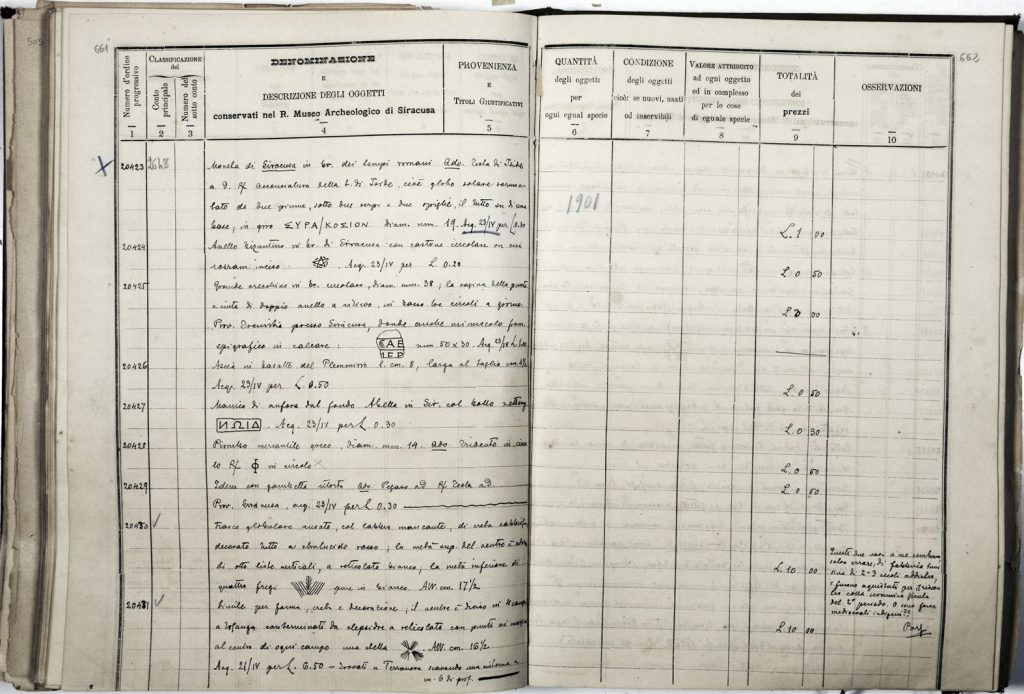 505
661
662
Numero d'ordine progressivo
1
CLASSIFICAZIONE
del
Conto principale
2
Numero del sotto conto
3
DENOMINAZIONE
E
DESCRIZIONE DEGLI OGGETTI
conservati nel R. Museo Archeologico di Siracusa
4
PROVENIENZA
E
TITOLI GIUSTIFICATIVI
5
QUANTITÀ
degli oggetti
per
ogni egual specie
6
CONDIZIONE
degli oggetti
cioè: se nuovi, usati
od inservibili
7
VALORE ATTRIBUITO
ad ogni oggetto
ed in complesso
per le cose
di eguale specie
8
TOTALITÀ
dei
prezzi
9
OSSERVAZIONI
10
1901
X 20423 Moneta di Siracusa in br. dei tempi romani Ado. Testa di Iside
a D. Rf. della t. di Iside, cioè globo solare sormon-
tato da due piume, sotto due serpi e due spighe, il tutto su di una
base; in giro ΣΥΡΑ/ΚΟΣΙΟΝ. diam. mm. 19. Acq. 23/IV per L 0.30
L. 1 00
20424 Anello bizantino in br. di Siracusa con castone circolare on cui
inciso: Acq. 23/IV per L. 0.20
L. 0 50
20425 Grande orecchino in br. circolare, diam. mm. 38; la
è cinta di doppio anello a rilievo, in basso tre circoli a giorno.
Prov. presso Siracusa, donde anche minuscolo fram.
epigrafico in calcare: mm. 50 x 30. Acq. 23/IV
L. 3 00
20426 Ascia in basalte del Plemmirio l. cm. 8, larga al taglio
Acq. 23/IV per L. 0.50
L. 0 50
20427 Manico di anfora dal fondo Abella in Sir. col bollo
ΝΩΙΔ. Acq. 23/IV per L 0.30
L. 0 30
20428 Piombo mercantile greco, diam. mm. 14. Ado. Tridente in circo-
lo Rf. Φ in circolo
L. 0 50
20429 Idem con gambetta Ado. Pegaso ad. Rf. Testa ad.
Prov. Siracusa, acq. 23/IV per L 0.30
L. 0 50
20430 ✓ Fiasco globulare ansato, col labbro mancante, di creta
decorato tutto a rosso; la metà sup. del ventre è
di otto liste verticali, a reticolato bianco, la metà inferiore di
quattro fregi pure in bianco. Alt. cm. 17 1/2
L. 10 00
20431 ✓ Simile per forma, creta e decorazione; il ventre è diviso in 4 campi
a losanga da clessidre a reticolato con punti ai margini
al centro di ogni campo una stella. Alt. cm. 16 1/2
Acq. 24/IV per L. 6.50 – Trovati a Terranova una cisterna a
m. 6 di prof.
L. 10 00
Questi due vasi a me sembrano
salvo errore, di fabbrica
di 2-3 secoli addietro,
e furono acquistati per
del 2° periodo. O sono forse
medioevali indigeni??